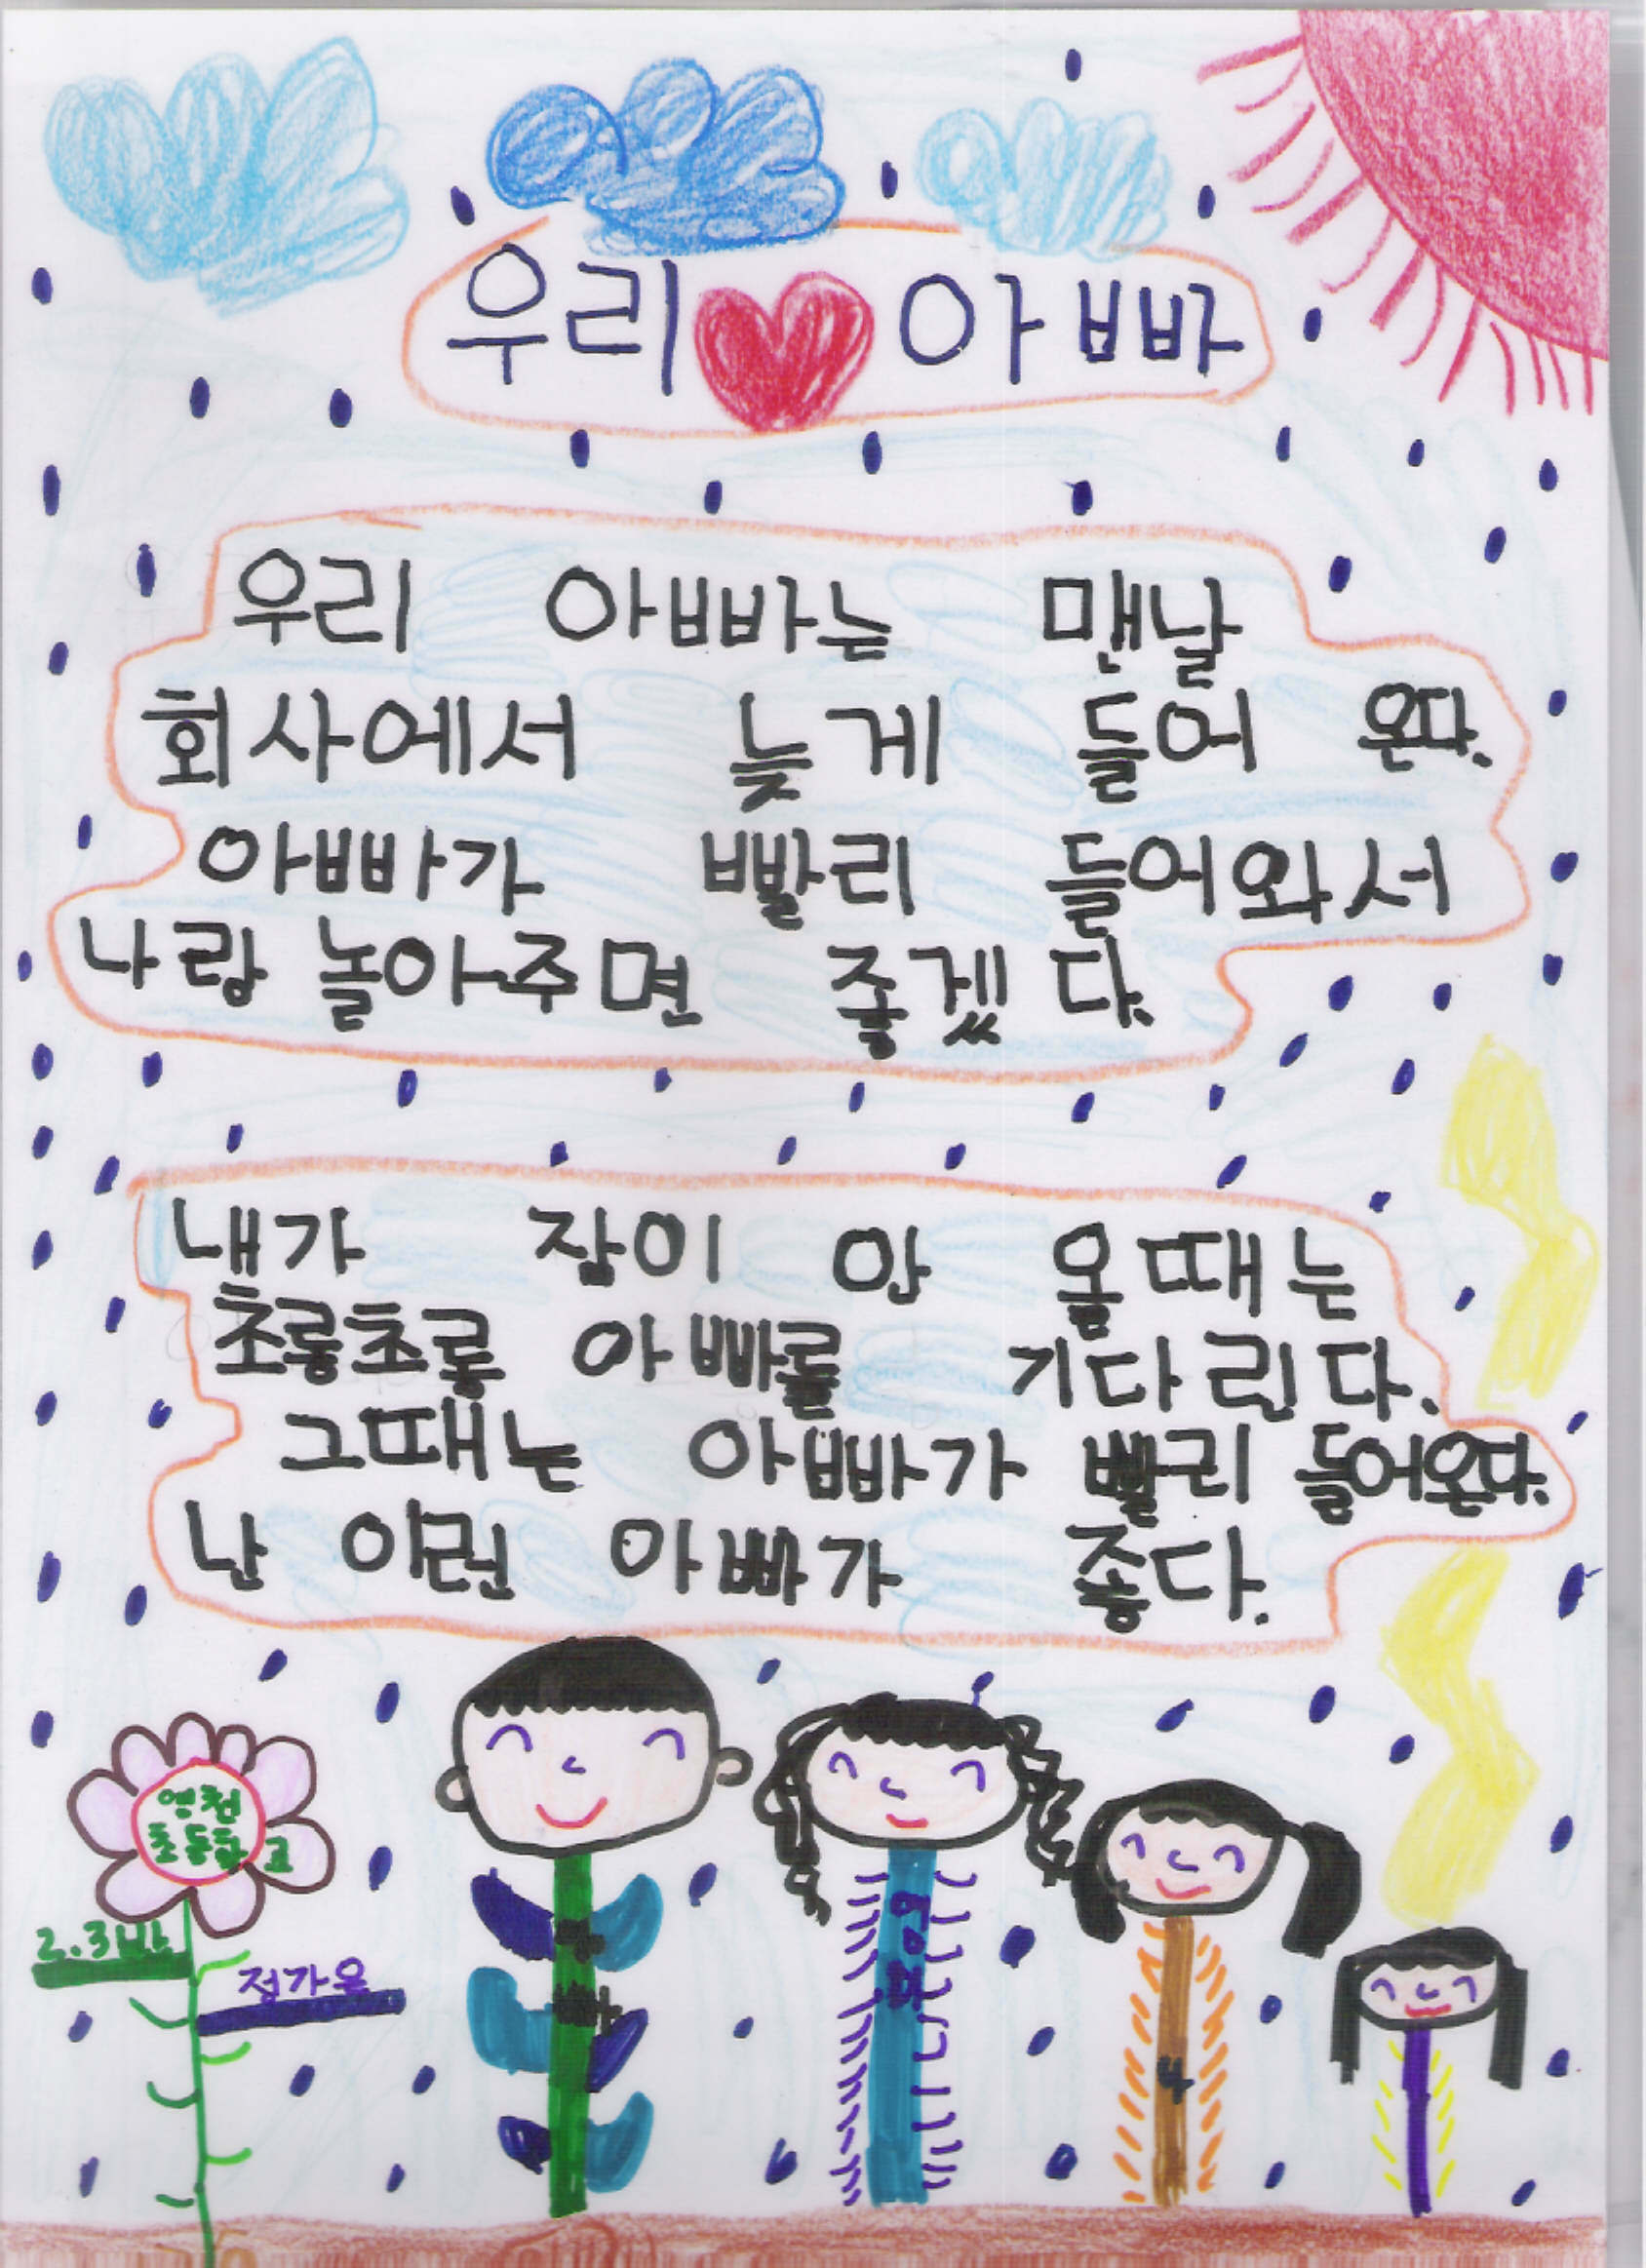 우리 아빠
우리 아빠는 맨날
회사에서 늦게 들어 온다.
아빠가 빨리 들어와서
나랑 놀아주면 좋겠다.
내가 잠이 안 올때는
초롱초롱 아빠를 기다린다.
그때는 아빠가 빨리 들어온다.
난 이런 아빠가 좋다.
초등학교
2.3반
정가은
아빠
엄마
나